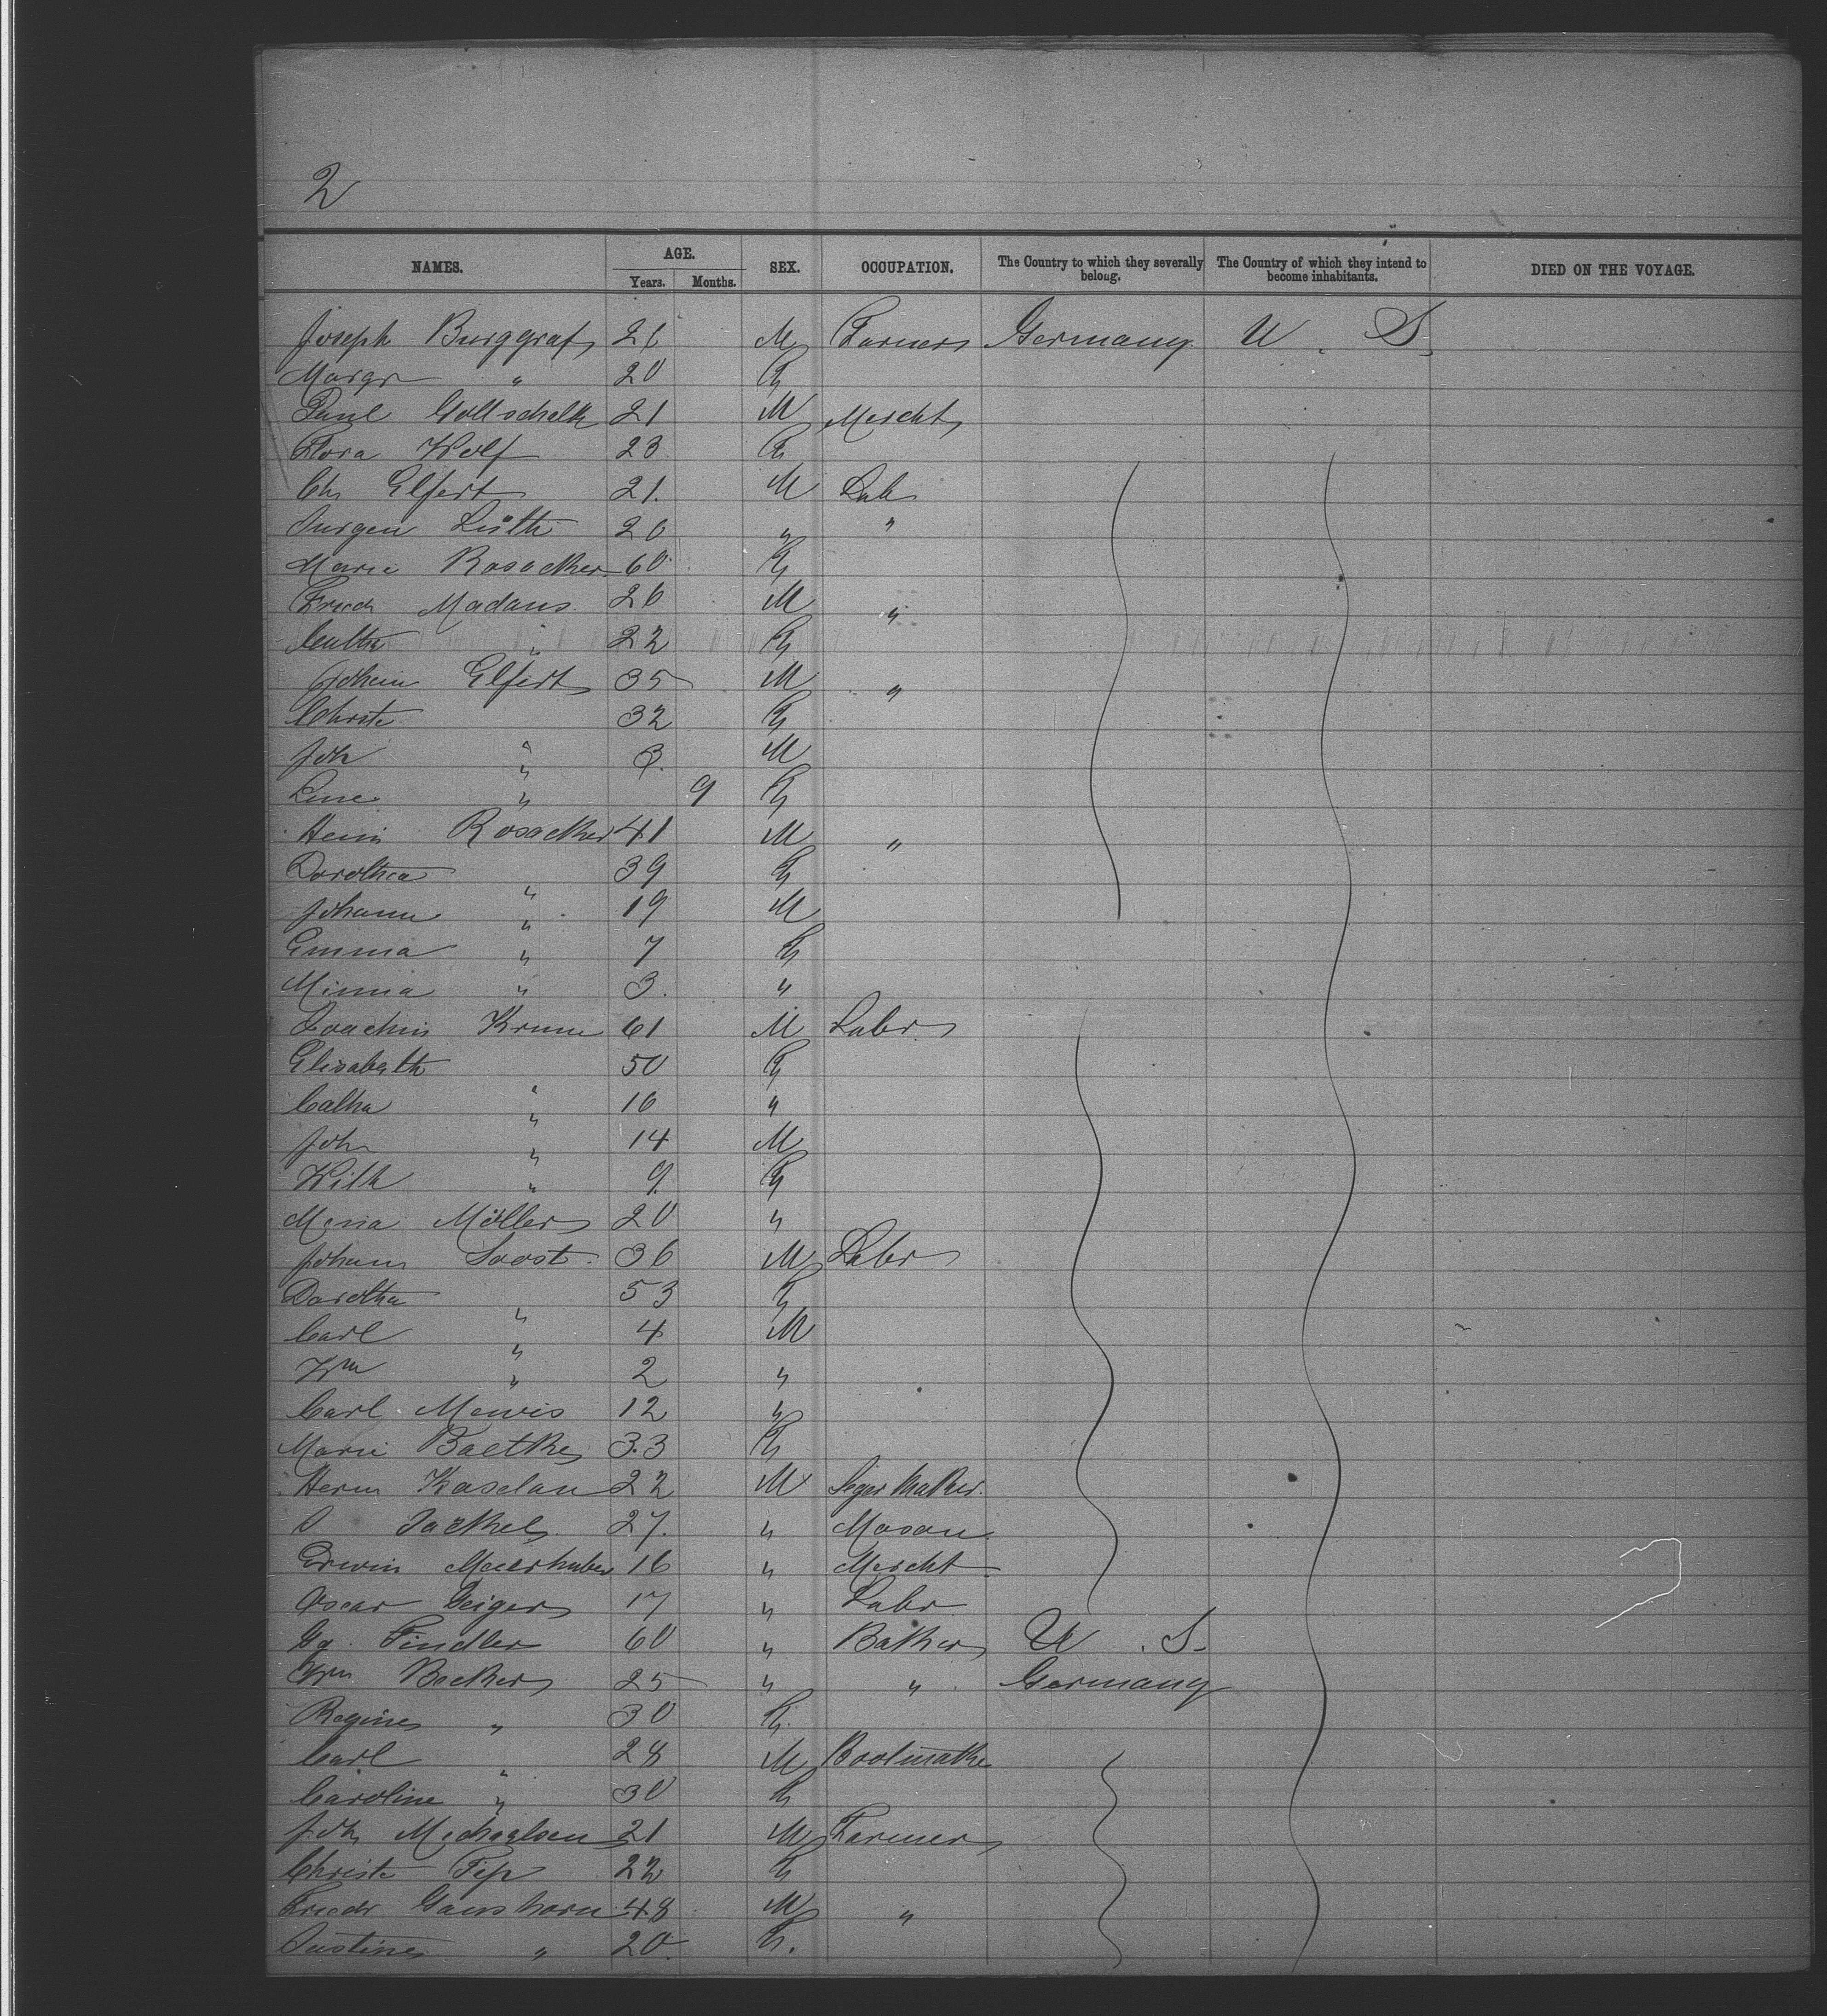 2
NAMES. AGE. Years. Months. SEX. OCCUPATION. The Country to which they severally belong. The Country of which they intend to become inhabitants. DIED ON THE VOYAGE.
Joseph Burggraf 21 M Farmer Germany U. S.
Margr " 20 F
Paul Gottschalk 21 M Mercht
Flora Wolf 23 F
Ch Elfert 21. M Lab
Jurgen Lüth 20 " "
Marie Rosacker 60 F
Friedr Madaus 26 M "
Catha " 22 F
Johann Elfert 35 M "
Christe " 32 F
Joh " 3. M
Line " 9 F
Heinr Rosacker 41 M "
Dorothea " 39 F
Johann " 19 M
Emma " 7 F
Minna " 3. "
Joachim Krum 61 M Labr
Elisabeth " 50 F
Catha " 16 "
Joh " 14 M
Wilh " 9. F
Maria Möller 20 "
Johann Soost 36 M Labr
Dorotha " 53 F
Carl " 4 M
Wm " 2 "
Carl Mewis 12 "
Marie Baethke 33 F
Herm Kaselau 22 M Segar Maker.
J Jackel 27. " Mason
Erwin Meierhuber 16 " Mercht
Oscar Geiger 17 " Labr
Gg. Findler 60 " Baker U. S.
Wm Becker 25 " " Germany
Regine " 30 F.
Carl " 28 M Bootmaker
Caroline " 30 F
Joh Michaelsen 21 M Farmer
Christe Fip 22 F
Friedr Ganshorn 48 M "
Justine " 20 F.